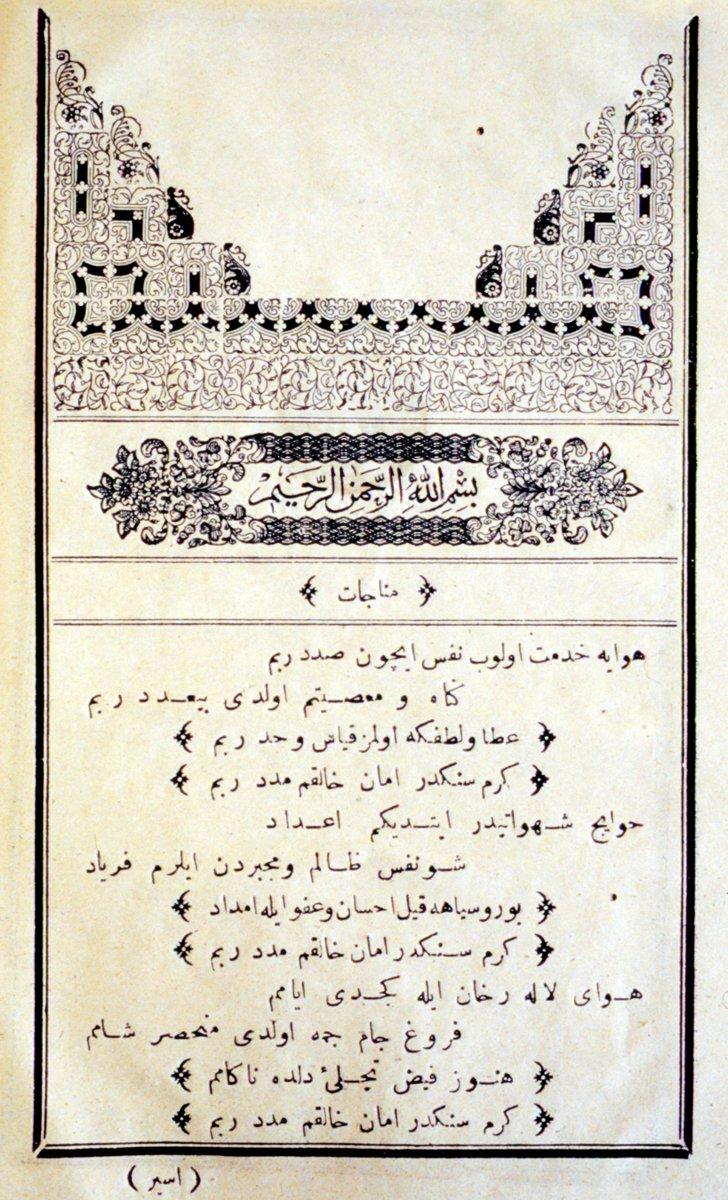 بِسْمِ اللّٰهِ الرَّحْمٰنِ الرَّحِيمِ
﴿ مناجات ﴾
هوايه خدمت اولوب نفس ايچون صدد ربم
كناه و معصيتم اولدى بيعدد ربم
﴿ عطا ولطفكه اولمز قياس وحد ربم ﴾
﴿ كرم سنكدر امان خالقم مدد ربم ﴾
حوايج شهواتيدر ايتديكم اعداد
شو نفس ظالم ومجبردن ايلرم فرياد
﴿ بوروسياهه قيل احسان وعفو ايله امداد ﴾
﴿ كرم سنكدر امان خالقم مدد ربم ﴾
هواى لاله رخان ايله كچدى ايامم
فروغ جام جمه اولدى منحصر شامم
﴿ هنوز فيض تجلئ دلده ناكامم ﴾
﴿ كرم سنكدر امان خالقم مدد ربم ﴾
( اسير )